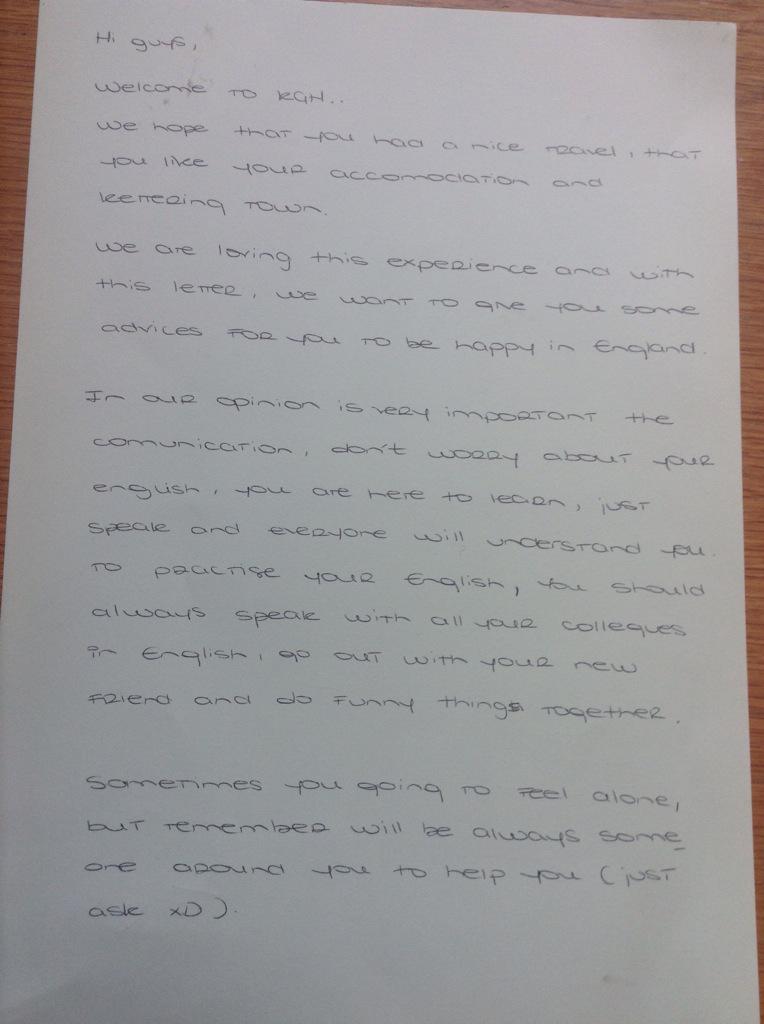 Hi guys,
Welcome to KGH..
We hope that you had a nice travel, that
you like your accomodation and
Kettering town.
We are loving this experience and with
this letter, we want to give you some
advices for you to be happy in England.
In our opinion is very important the
comunication, don't worry about your
english, you are here to learn, just
speak and everyone will understand you.
To practise your English, you should
always speak with all your collegues
in English, go out with your new
friend and do funny things together.
Sometimes you going to feel alone,
but remember will be always some_
one around you to help you (just
ask xD).